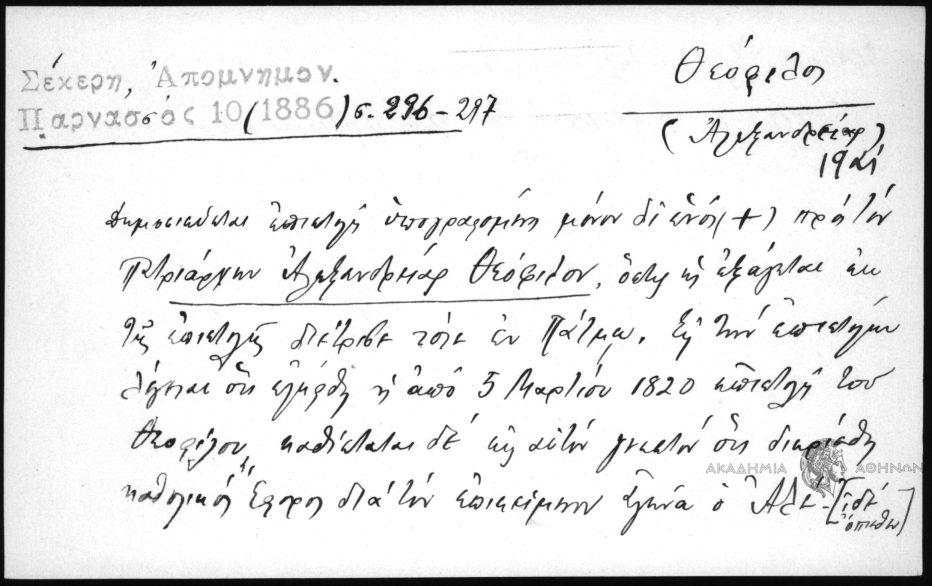 Σέκερη, Ἀπομνημον.
Παρνασσός 10 (1886) σ. 296-297
Θεόφιλος
(Ἀλεξανδρείας)
Δημοσιεύεται ἐπιστολὴ ὑπογραφομένη μόνον δι' ἑνός (+) πρὸς τὸν
Πατριάρχην Ἀλεξανδρείας Θεόφιλον, ὅστις ὡς ἐξάγεται ἐκ
τῆς ἐπιστολῆς διέτριβε τότε ἐν Πάτμῳ. Εἰς τὴν ἐπιστολὴν
λέγεται ὅτι ἐλήφθη ἡ ἀπὸ 5 Μαρτίου 1820 ἐπιστολὴ τοῦ
Θεοφίλου, καθίσταται δὲ εἰς αὐτὸν γνωστὸν ὅτι διωρίσθη
καθολικὸς Ἔφορος διὰ τὸν ἐπικείμενον ἀγῶνα ὁ Ἀλέ- [ἰδὲ
ὄπισθεν]
ΑΚΑΔΗΜΙΑ ΑΘΗΝΩΝ